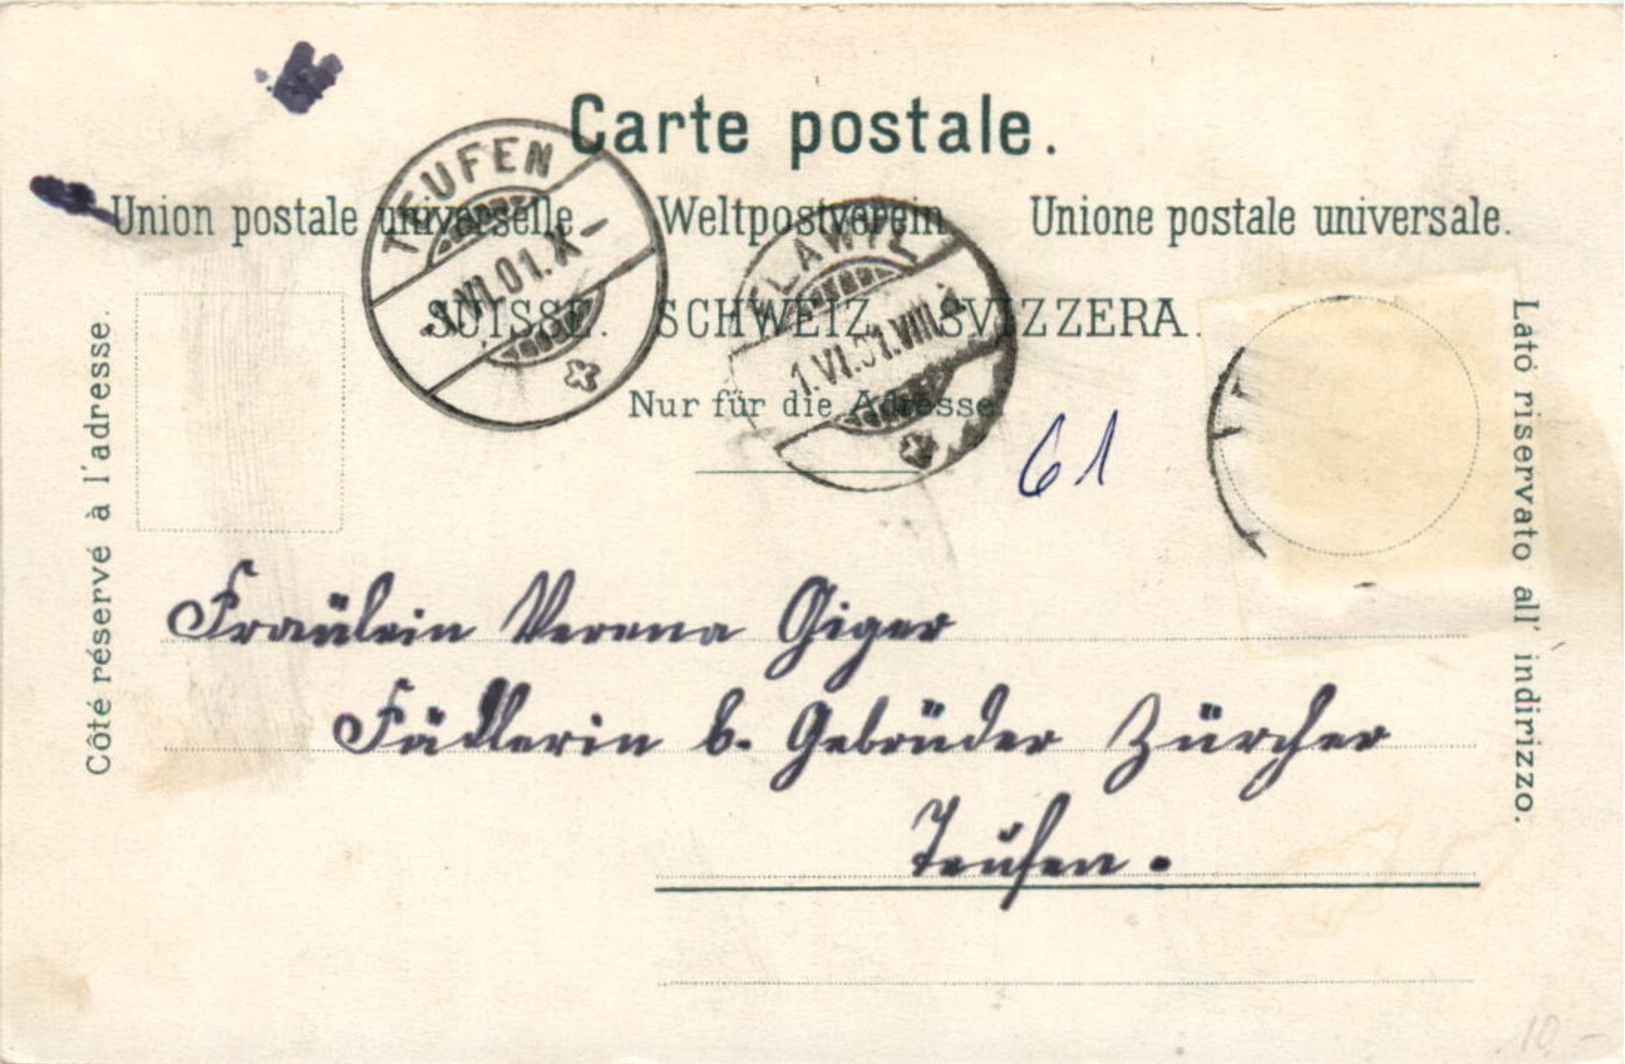 Carte postale.
Union postale universelle Weltpostverein Unione postale universale.
SUISSE. SCHWEIZ. SVIZZERA.
Nur für die Adresse.
TEUFEN
1.VI.01.X-
FLAWIL
1.VI.01.VIII
61
Côté réservé à l'adresse.
Lato riservato all' indirizzo.
Fräulein Verena Giger
Fädlerin b. Gebrüder Zürcher
Teufen.
10 -